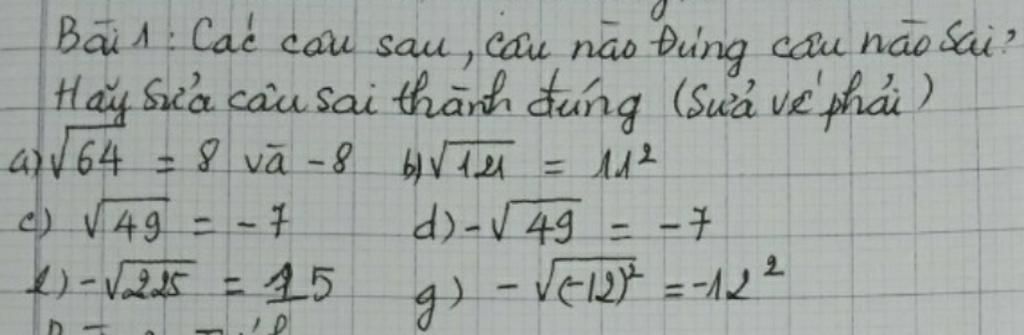 Bài 1: Các câu sau, câu nào đúng câu nào sai?
Hãy sửa câu sai thành đúng (sửa vế phải)
a) √64 = 8 và -8 b) √121 = 11²
c) √49 = -7 d) -√49 = -7
e) -√225 = 15 g) -√(-12)² = -12²